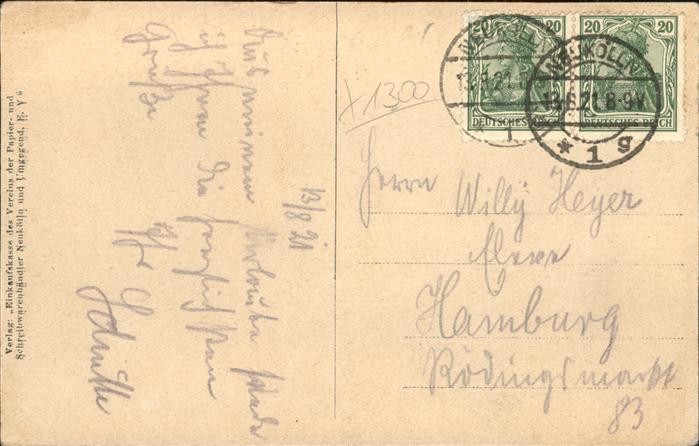 Verlag: „Einkaufskasse des Vereins der Papier- und
Schreibwarenhändler Neukölln und Umgegend, E. V."
13/8 21
Aus meinem Urlaube sende
ich Ihnen die herzlichsten
Grüße
Ihr
Schütte
+1300
20
20
DEUTSCHES REICH
DEUTSCHES REICH
NEUKÖLLN
NEUKÖLLN
13.8.21. 8-9V
* 1 g
Herrn
Willÿ Heyer
Hamburg
Rödingsmarkt
83